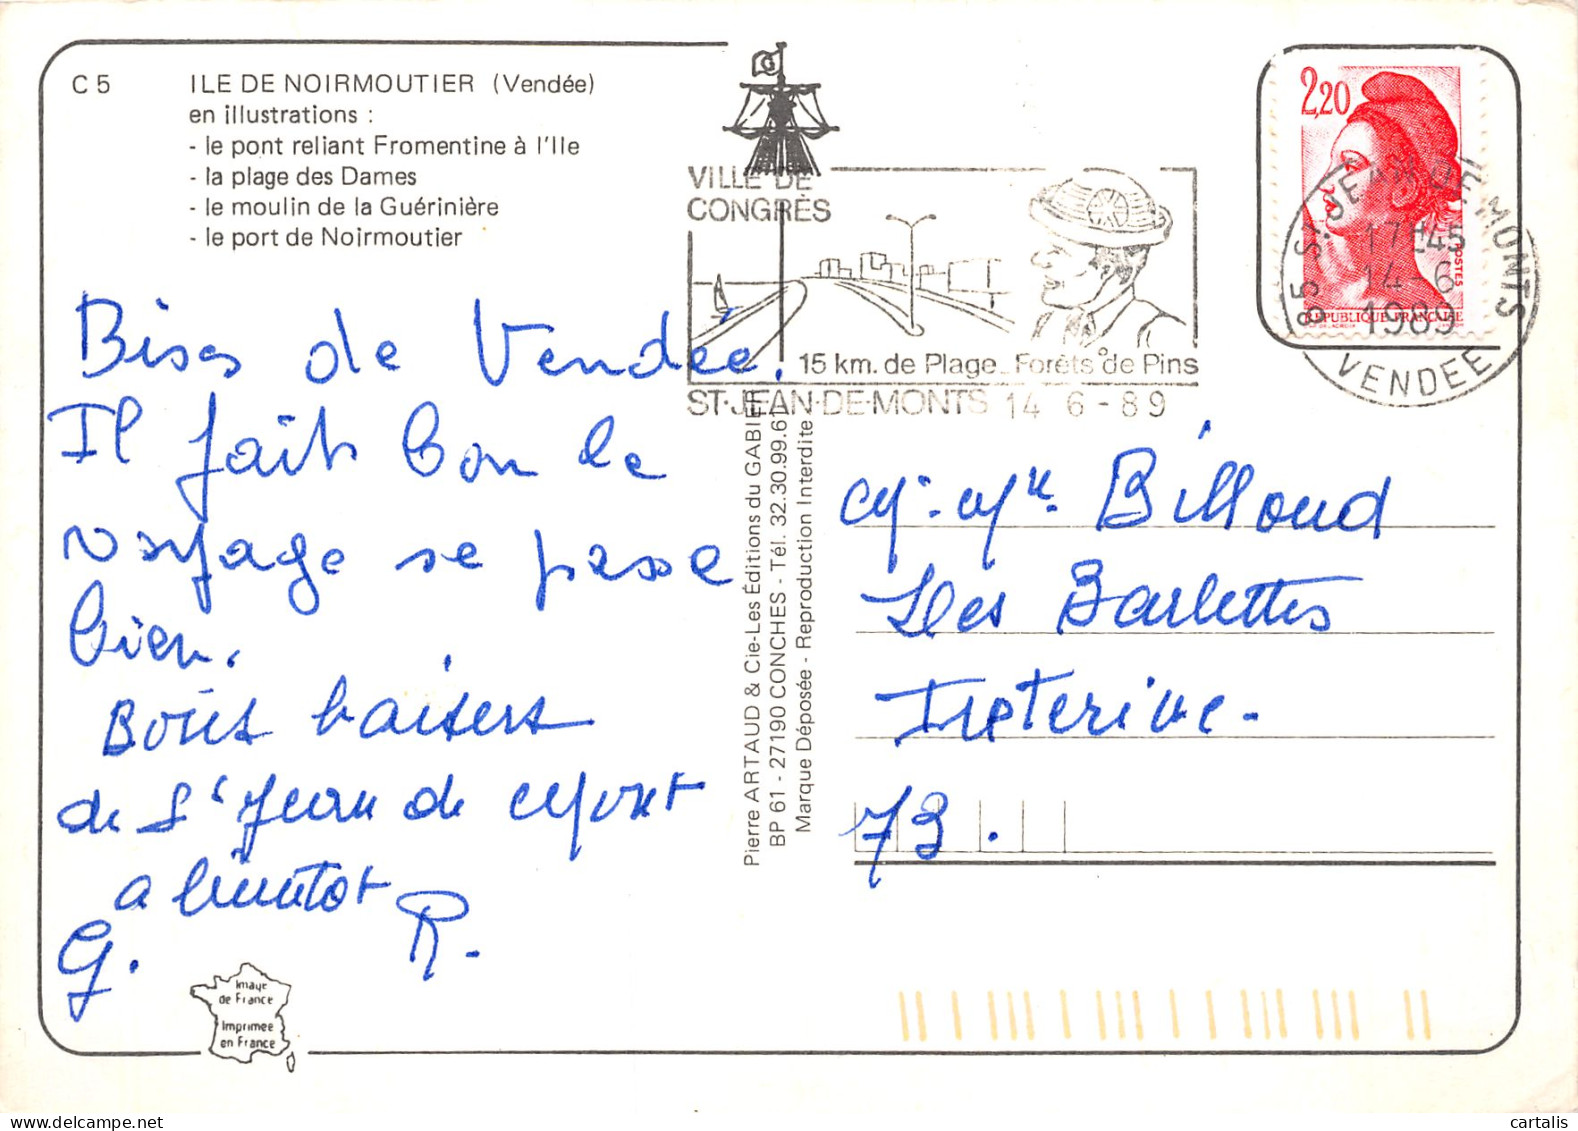 C 5 ILE DE NOIRMOUTIER (Vendée)
en illustrations :
- le pont reliant Fromentine à l'Ile
- la plage des Dames
- le moulin de la Guérinière
- le port de Noirmoutier
Bises de Vendée.
Il fait bon le
voyage se passe
bien.
Bons baisers
de St Jean de Mont
a bientot
G. R.
Image
de France
Imprimée
en France
Pierre ARTAUD & Cie-Les Éditions du GABIER
BP 61 - 27190 CONCHES - Tél. 32.30.99.61
Marque Déposée - Reproduction Interdite
VILLE DE
CONGRÈS
15 km. de Plage_Forêts de Pins
ST-JEAN-DE-MONTS 14 6 - 89
2,20
POSTES
REPUBLIQUE FRANÇAISE
85 ST JEAN DE MONTS
17H45
14-6
1989
VENDEE
M. Me. Billoud
Les Barlettes
73.
delcampe.net
cartalis